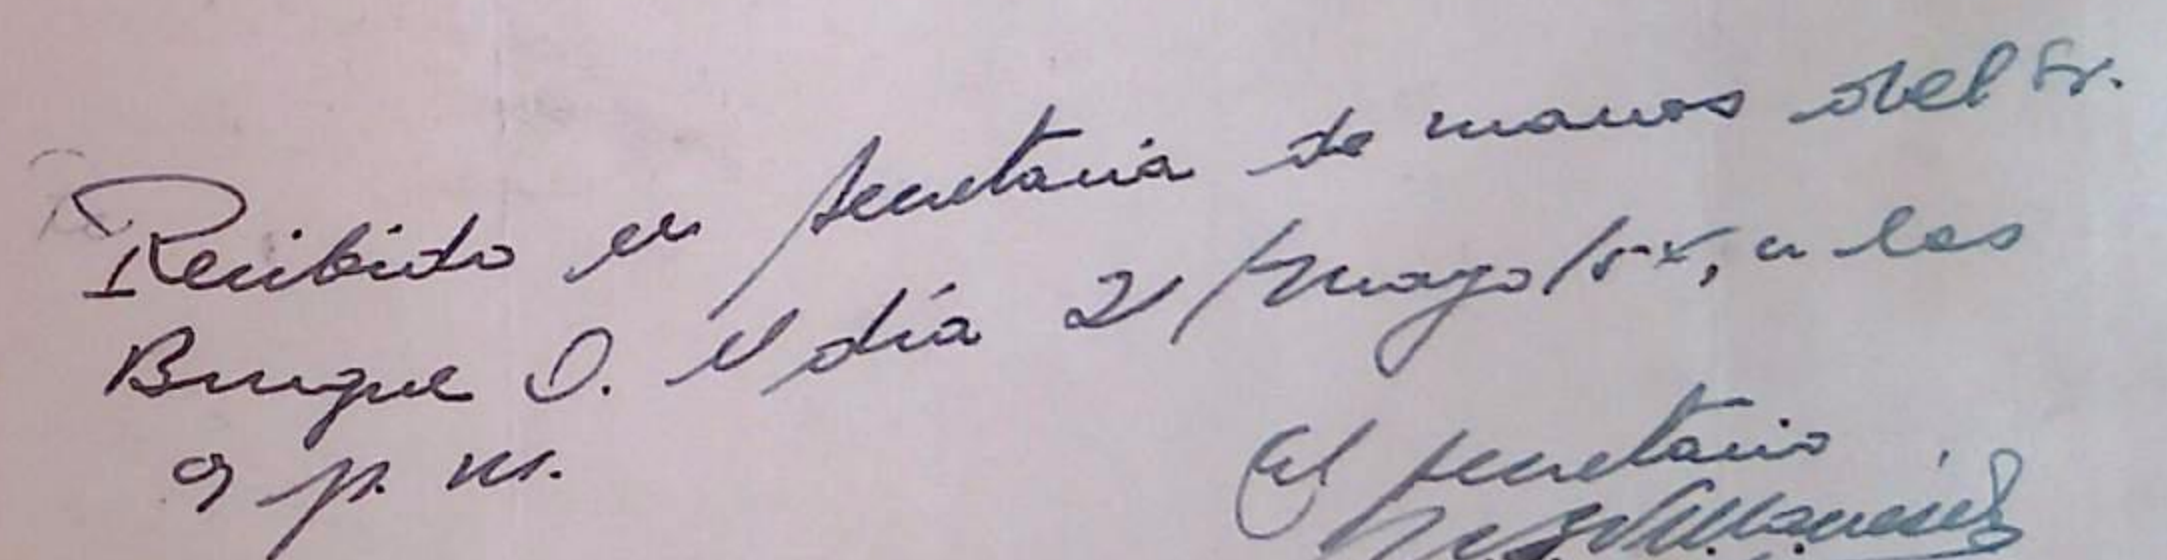 Recibido en secretaria de manos del Sr.
Burgue O. el día 2/mayo/5x, a las
9 p. m.
El secretario